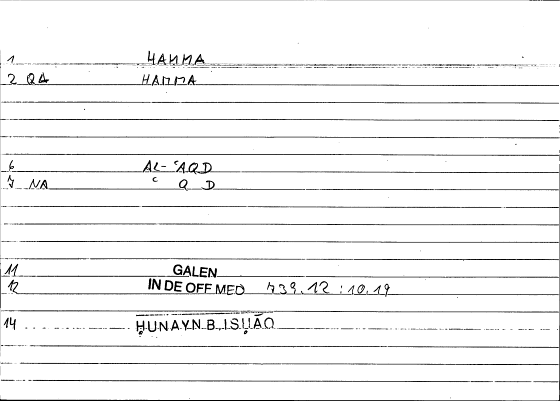 1 HAMMA
2 QA HAMMA
6 AL-ʿAQD
7 NA ʿ Q D
11 GALEN
12 IN DE OFF MED 739.12 : 10.19
14 ḤUNAYN B. ISḤĀQ